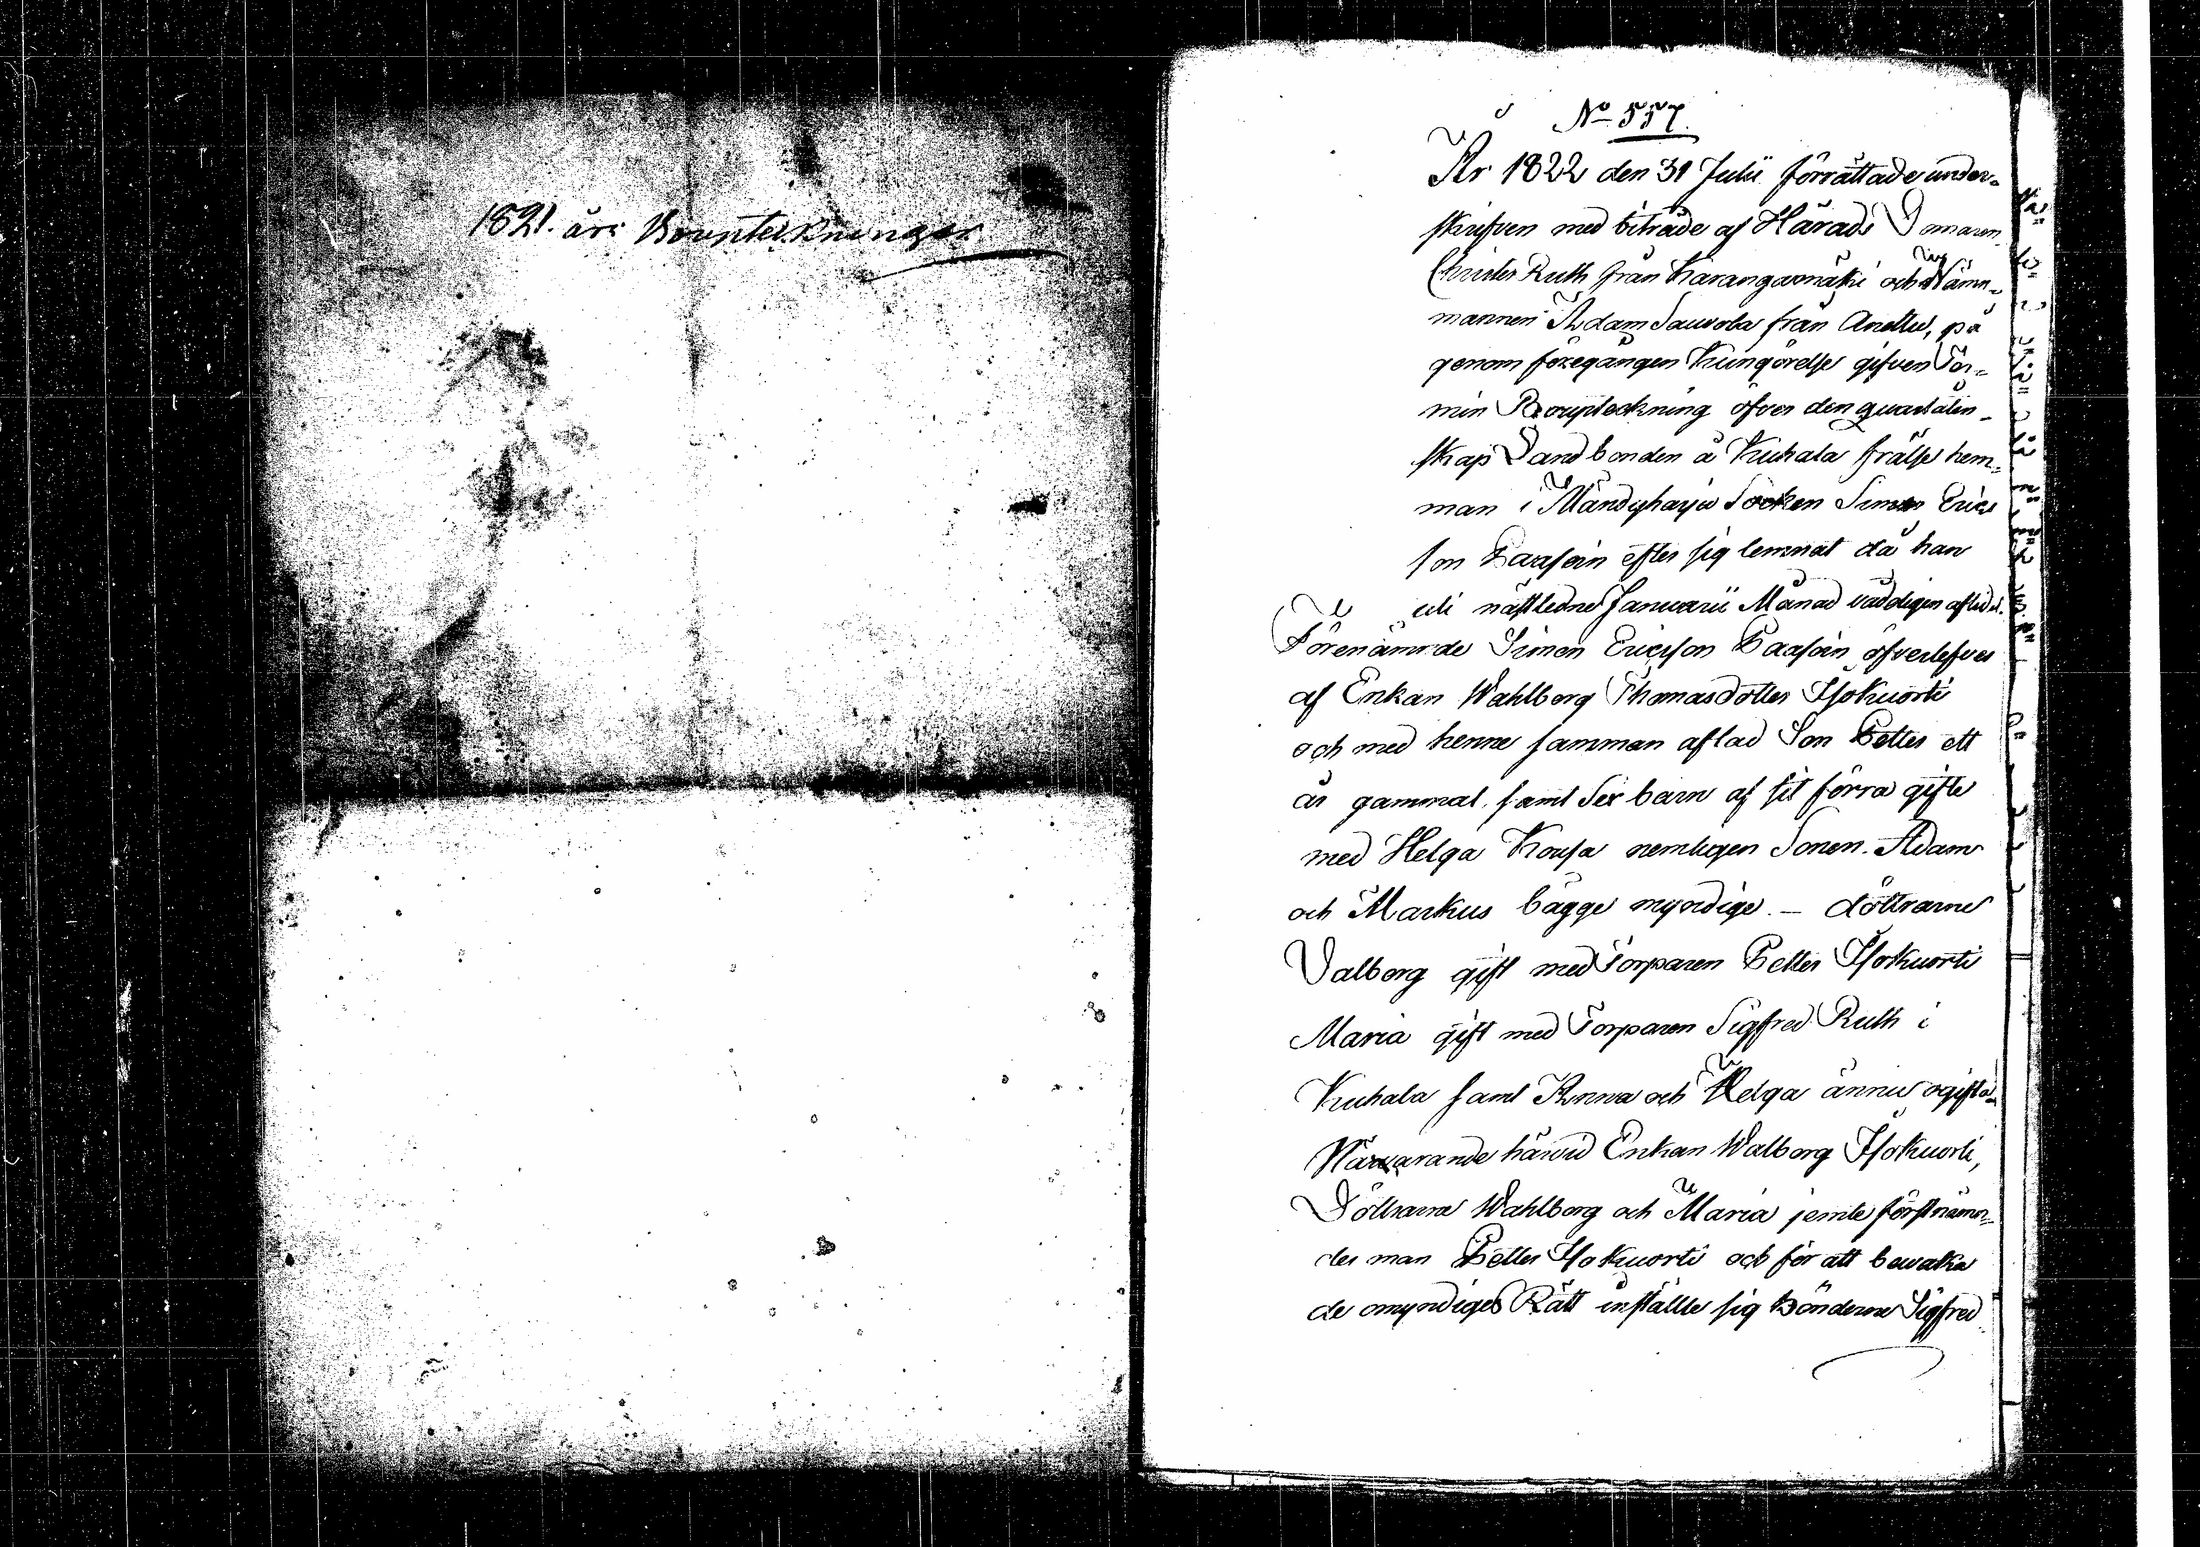 1821. års Bouptekninger
No 557.
År 1822 den 31 Julii förrättade under-
skrifven med biträde af Härads Domaren
Christer Ruth från Karangawnäki och Nämn-
mannen Adam Sauvola från Anttu, på
genom föregången Kungörelse gifven Ter-
min Boupteckning öfver den qvarlåten-
skap Landbonden å Kuhala frälse hem-
man i Mändyharju Socken Simon Erics
son Paasoin efter sig lemnat då han
uti nästledne Januarii Månad
Förenämnde Simon Ericsson Paasoin öfverlefves
af Enkan Wahlborg Thomasdotter Hokuorti
och med henne samman aflad Son Petter ett
år gammal, samt Sex barn af sit förra gifte
med Helga Kousa nemligen Sonen Adam
och Markus bägge myndige. — döttrarne
Valborg gift med Torparen Petter Hokuorti
Maria gift med Torparen Sigfred Ruth i
Kuhala samt Anna och Helga ännu ogifta
Närvarande härvid Enkan Walborg Hokuorti,
Döttrarna Wahlborg och Maria jemte förstnämn-
des man Petter Hokuorti och för att bewaka
de omyndiges Rätt inställte sig Bönderne Sigfred